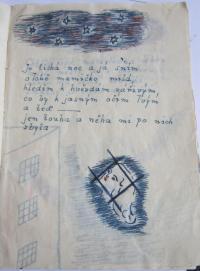 Je tichá noc a já sním
o tobě mamičko milá,
hledím k hvězdám zářivým,
co by k jasným očím Tvým
a teď
jen touha a něha mi po nich
zbyla